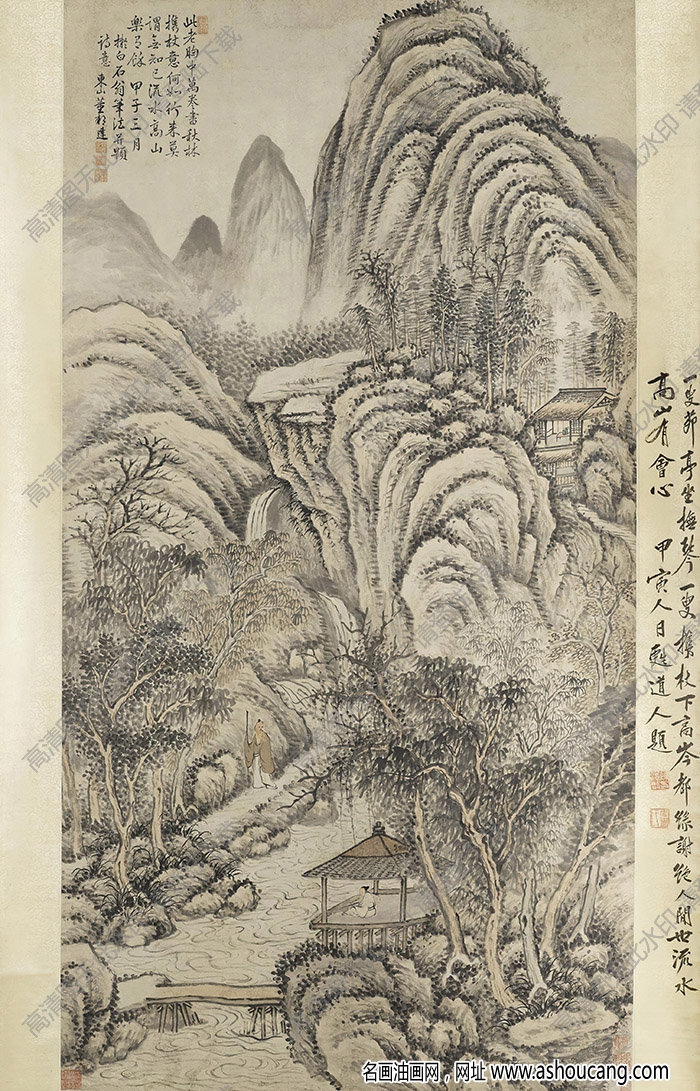 此老胸中萬卷書秋林
携杖意何如行來莫
謂無知己流水高山
樂有餘 甲子三月
擬白石翁筆法并題
詩意 東山董邦達
一叟茆亭坐撫琴一叟攜杖下高岑都緣謝絕人間世流水
高山有會心 甲寅人日甦道人題
名画油画网，网址 www.ashoucang.com